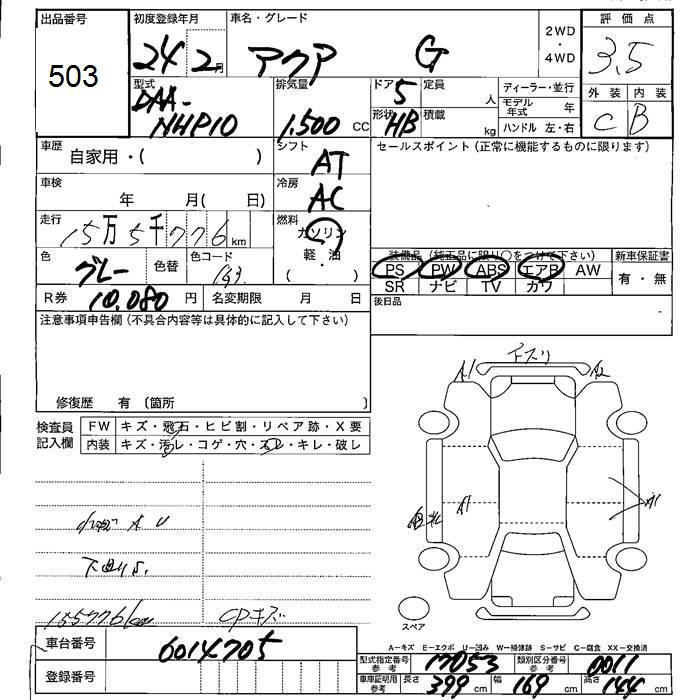 出品番号 初度登録年月 車名・グレード 2WD・4WD 評価点
503 24 2月 アクア G 3.5
型式 排気量 ドア 5 定員 人 ディーラー・並行 外装 内装
DAA-NHP10 1.500 CC 形状 HB 積載 kg モデル年式 年 C B
ハンドル 左・右
車歴 自家用・( ) シフト AT セールスポイント (正常に機能するものに限ります)
車検 年 月( 日) 冷房 AC
走行 15万5千776km 燃料 ガソリン
色 グレー 色替 色コード 軽・油 ( ・ )
装備品 (純正品に限り○をつけて下さい) 新車保証書
PS PW ABS エアB AW 有・無
SR ナビ TV カワ
R券 10,080円 名変期限 月 日 後日品
注意事項申告欄 (不具合内容等は具体的に記入して下さい)
修復歴 有 〔箇所 〕
下ズリ
A1 A2
検査員記入欄 FW キズ・飛石・ヒビ割・リペア跡・X要
内装 キズ・汚レ・コゲ・穴・スレ・キレ・破レ
A1 A1
A U
下廻りS.
155776km CPキズ
スペア
車台番号 6014705
A-キズ E-エクボ U-凹み W-補修跡 S-サビ C-腐食 XX-交換済
型式指定番号 参考 17053 類別区分番号 参考 0011
登録番号 車庫証明用 参考 長さ 399cm 幅 169cm 高さ 144cm